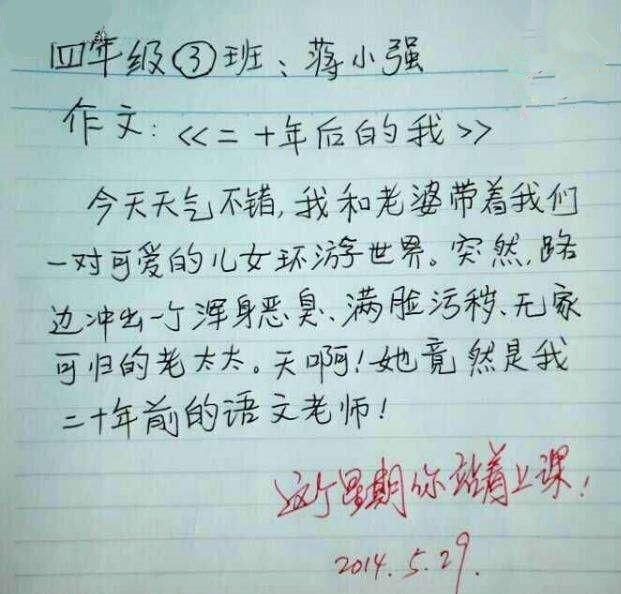 四年级③班:蒋小强
作文:<<二十年后的我>>
今天天气不错,我和老婆带着我们
一对可爱的儿女环游世界。突然,路
边冲出一个浑身恶臭、满脸污秽、无家
可归的老太太。天啊!她竟然是我
二十年前的语文老师!
这个星期你站着上课!
2014.5.29.